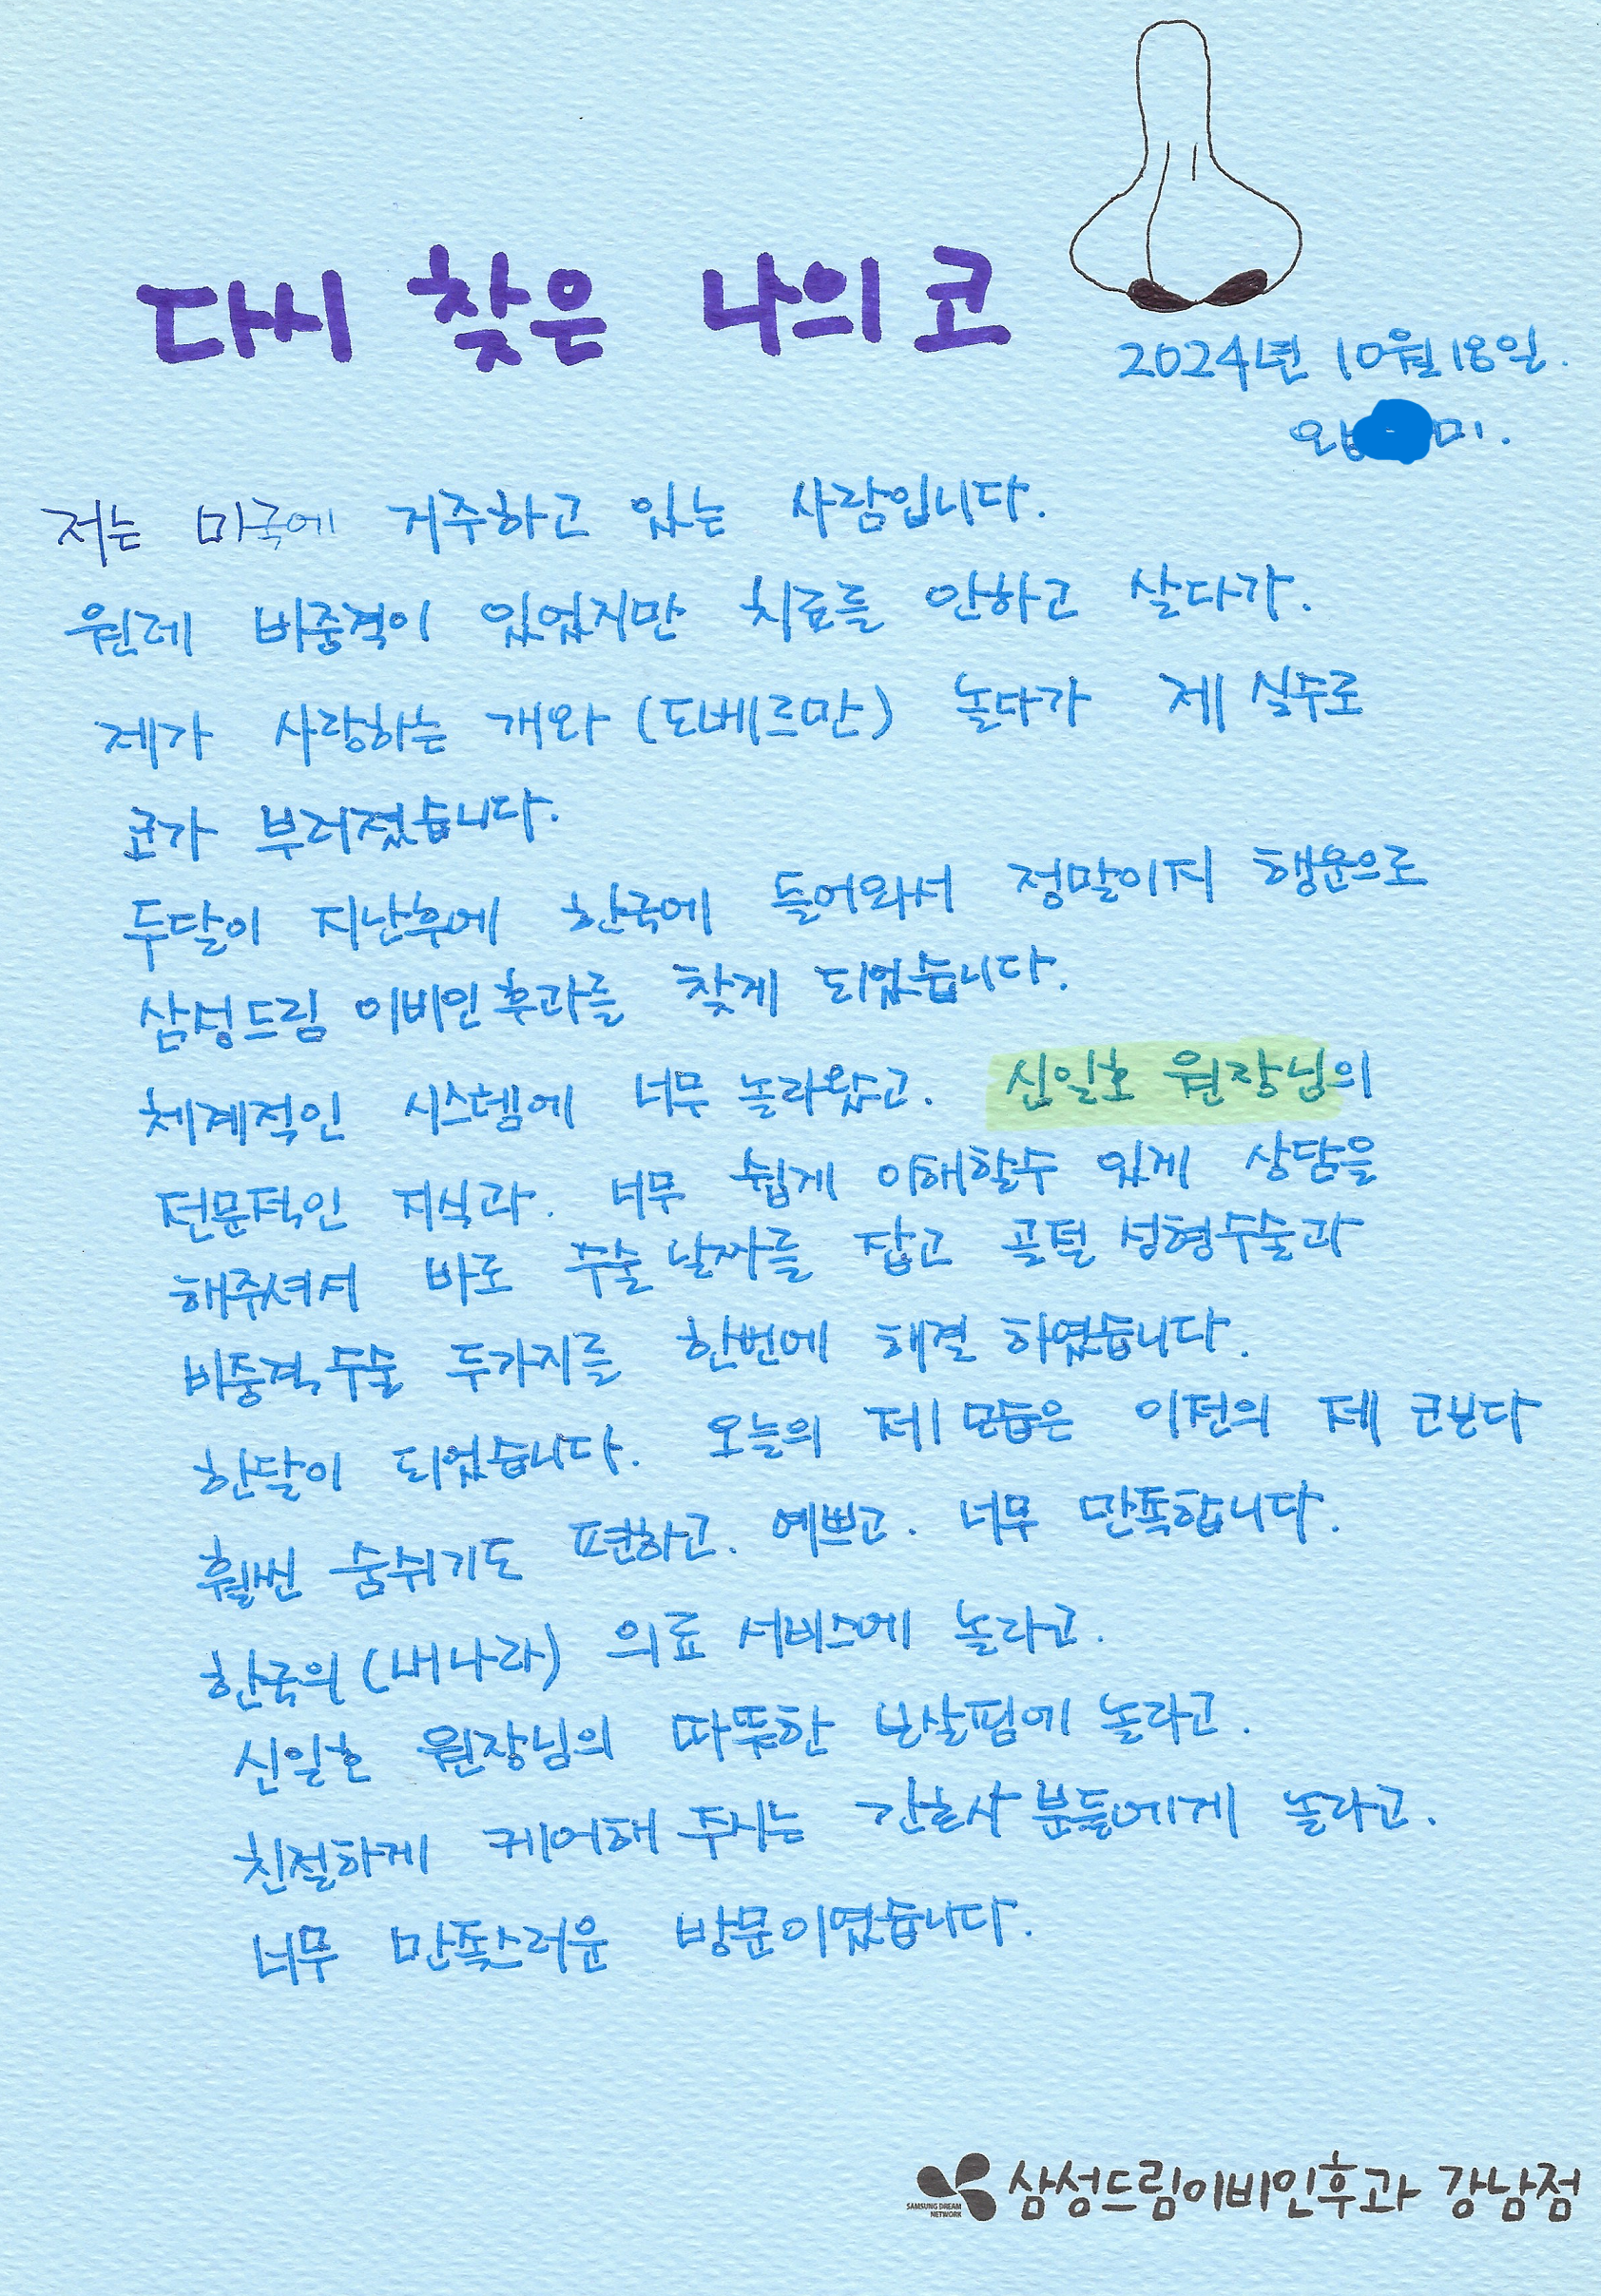 다시 찾은 나의 코
2024년 10월 18일.
미.
저는 미국에 거주하고 있는 사람입니다.
원레 비중격이 있었지만 치료를 안하고 살다가.
제가 사랑하는 개와 (도베르만) 놀다가 제 실수로
코가 부러졌습니다.
두달이 지난후에 한국에 들어와서 정말이지 행운으로
삼성드림 이비인후과를 찾게 되었습니다.
체계적인 시스템에 너무 놀라왔고. 신일호 원장님의
전문적인 지식과. 너무 쉽게 이해할수 있게 상담을
해주셔서 바로 수술 날짜를 잡고 골절 성형수술과
비중격수술 두가지를 한번에 해결 하였습니다.
한달이 되었습니다. 오늘의 제 모습은 이전의 제 코보다
훨씬 숨쉬기도 편하고. 예쁘고. 너무 만족합니다.
한국의 (내나라) 의료 서비스에 놀라고.
신일호 원장님의 따뜻한 보살핌에 놀라고.
친절하게 케어해 주시는 간호사 분들에게 놀라고.
너무 만족스러운 방문이였습니다.
SAMSUNG DREAM
NETWORK
삼성드림이비인후과 강남점